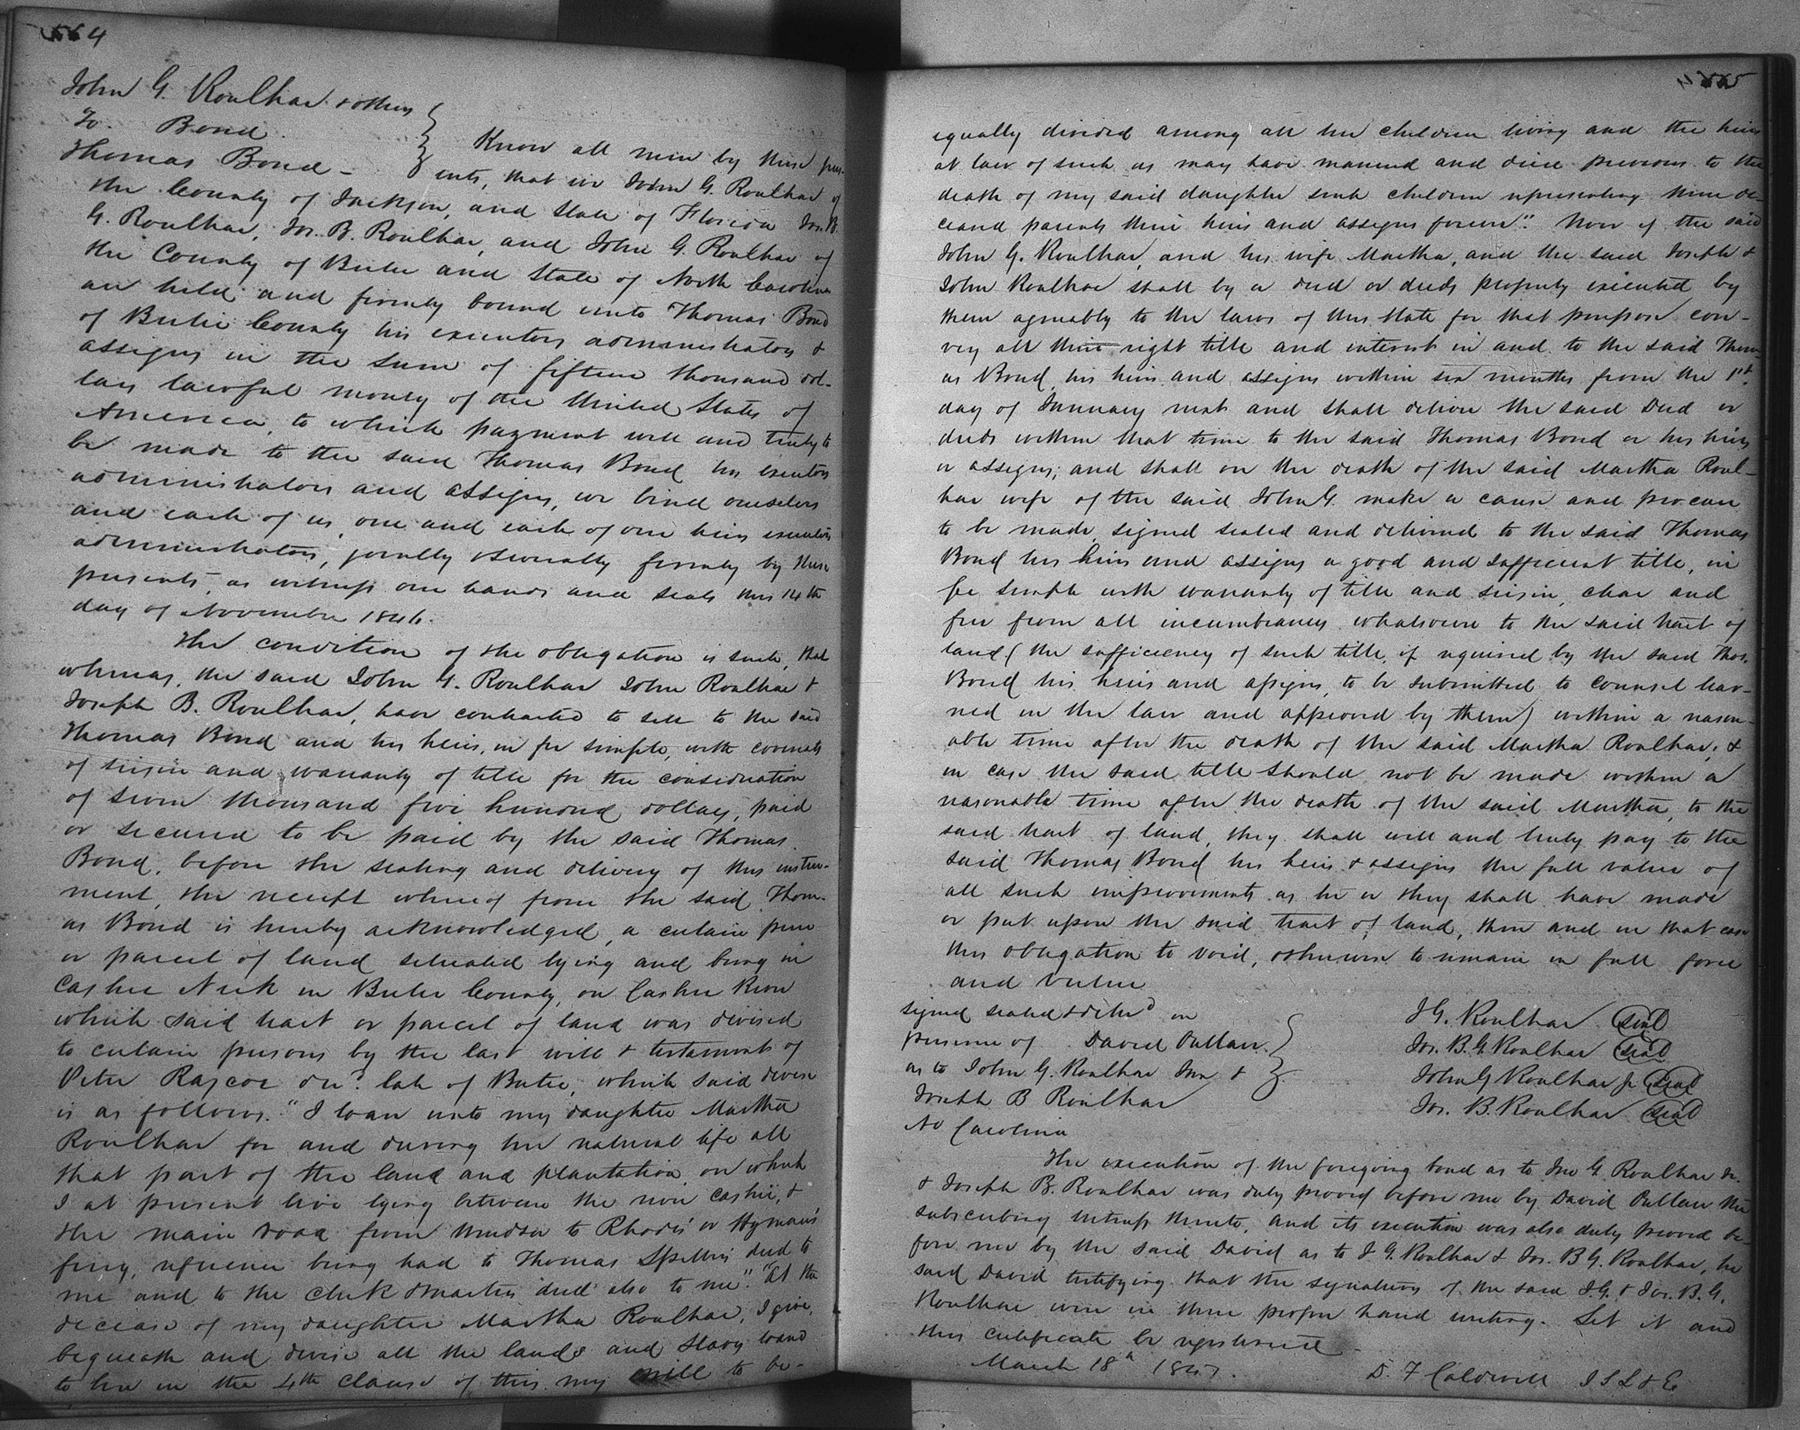 564
John G. Roulhac & others
To. Bond.
Thomas Bond - Know all men by these pres-
ents, that we John G. Roulhac of
the County of Jackson, and State of Florida Jos. B.
G. Roulhac, Jos. B. Roulhac, and John G. Roulhac of
the County of Bertie and State of North Carolina
are held and firmly bound unto Thomas Bond
of Bertie County his executors administrators &
assigns in the sum of fifteen thousand dol-
lars lawful money of the United States of
America, to which payment well and truly to
be made to the said Thomas Bond his executors
administrators and assigns, we bind ourselves
and each of us, our and each of our heirs executors
administrators, jointly & severally firmly by these
presents, as witness our hands and seals this 14th
day of November 1846.
The condition of the obligation is such, that
whereas, the said John G. Roulhac John Roulhac &
Joseph B. Roulhac, have contracted to sell to the said
Thomas Bond and his heirs, in fee simple, with covenants
of seisin and warranty of title for the consideration
of seven thousand five hundred dollars, paid
or secured to be paid by the said Thomas
Bond, before the sealing and delivery of this instru-
ment, the receipt whereof from the said Thom-
as Bond is hereby acknowledged, a certain piece
or parcel of land situated lying and being in
Cashie Neck in Bertie County, on Cashie River
which said tract or parcel of land was devised
to certain persons by the last will & testament of
Peter Rascoe decd. late of Bertie, which said devise
is as follows. "I loan unto my daughter Martha
Roulhac for and during her natural life all
that part of the land and plantation on which
I at present live lying between the river Cashie, &
the main road from Windsor to Rhodes' or Hyman's
ferry, reference being had to Thomas Speller's deed to
me and to the clerk & master's deed also to me". "At the
decease of my daughter Martha Roulhac, I give,
bequeath and devise all the lands and slaves loand
to her in the 4th clause of this my will to be-
565
equally divided among all her children living and the heirs
at law of such as may have married and died previous to the
death of my said daughter such children representing their de-
ceased parents their heirs and assigns forever". Now if the said
John G. Roulhac, and his wife Martha, and the said Joseph &
John Roulhac shall by a deed or deeds properly executed by
them agreeably to the laws of this State for that purpose con-
vey all their right title and interest in and to the said Thom-
as Bond, his heirs and assigns within six months from the 1st.
day of January next and shall deliver the said Deed or
deeds within that time to the said Thomas Bond or his heirs
or assigns; and shall on the death of the said Martha Roul-
hac wife of the said John G. make or cause and procure
to be made, signed sealed and delivered to the said Thomas
Bond his heirs and assigns a good and sufficient title, in
fee simple with warranty of title and seisin, clear and
free from all incumbrances whatsoever to the said tract of
land (the sufficiency of such title, if required by the said Thos.
Bond his heirs and assigns, to be submitted to counsel lear-
ned in the law and approved by them) within a reason-
able time after the death of the said Martha Roulhac; &
in case the said title should not be made within a
reasonable time after the death of the said Martha, to the
said tract of land, they shall well and truly pay to the
said Thomas Bond his heirs & assigns the full value of
all such improvements as he or they shall have made
or put upon the said tract of land, then and in that case
this obligation to void, otherwise to remain in full force
and virtue
signed sealed & delivd in
presence of David Outlaw.
as to John G. Roulhac Jnr &
Joseph B Roulhac
J G. Roulhac (seal)
Jos. B. G. Roulhac (seal)
John G Roulhac Jr (seal)
Jos. B. Roulhac (seal)
No Carolina
The execution of the foregoing bond as to Jno G. Roulhac Jr.
& Joseph B. Roulhac was duly proved before me by David Outlaw the
subscribing witness thereto, and its execution was also duly proved be-
fore me by the said David as to J. G. Roulhac & Jos. B G. Roulhac, he
said David testifying that the signatures of the said J. G. & Jos. B. G.
Roulhac were in their proper hand writing. Let it and
this certificate be registered
March 18th 1847.
D. F Caldwell J S L & E